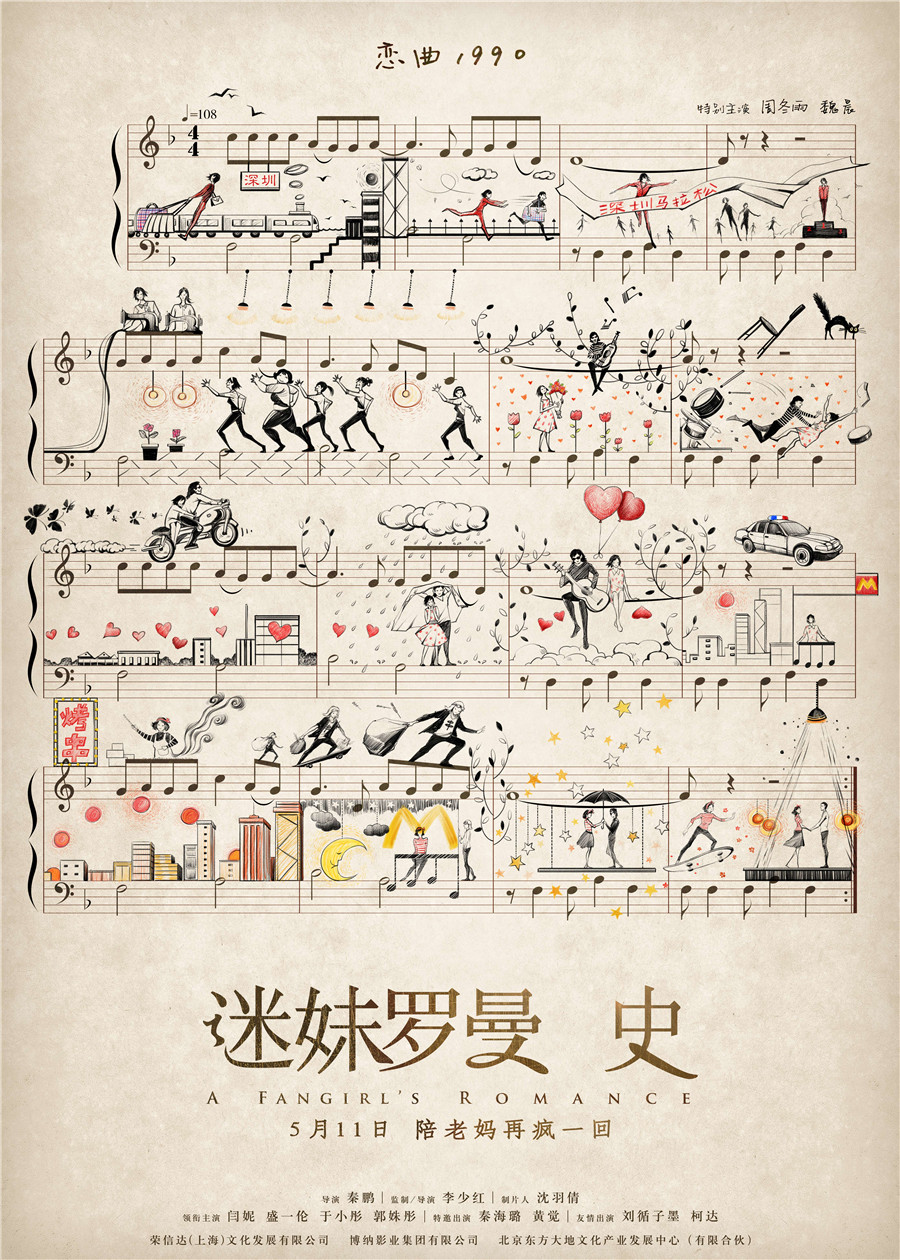 恋曲1990
特别主演 周冬雨 魏晨
=108
4
4
深圳
深圳马拉松
M
烤串
M
迷妹罗曼 史
A FANGIRL'S ROMANCE
5月11日 陪老妈再疯一回
导演 秦鹏 | 监制/导演 李少红 | 制片人 沈羽倩
领衔主演 闫妮 盛一伦 于小彤 郭姝彤 | 特邀出演 秦海璐 黄觉 | 友情出演 刘循子墨 柯达
荣信达(上海)文化发展有限公司 博纳影业集团有限公司 北京东方大地文化产业发展中心(有限合伙)